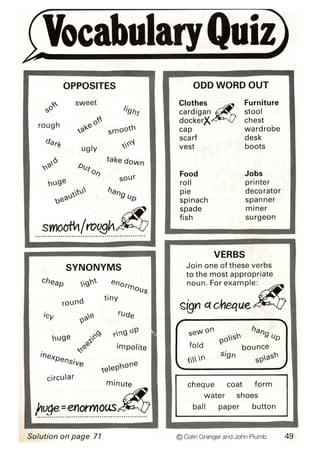 Vocabulary Quiz
OPPOSITES
soft
sweet
light
rough
take off
smooth
dark
ugly
tiny
hard
put on
take down
huge
sour
beautiful
hang up
smooth/rough
SYNONYMS
cheap
light
enormous
round
tiny
icy
pale
rude
huge
freezing
ring up
impolite
inexpensive
telephone
circular
minute
huge = enormous
ODD WORD OUT
Clothes
cardigan
docker X
cap
scarf
vest
Furniture
stool
chest
wardrobe
desk
boots
Food
roll
pie
spinach
spade
fish
Jobs
printer
decorator
spanner
miner
surgeon
VERBS
Join one of these verbs
to the most appropriate
noun. For example:
sign a cheque
sew on
polish
hang up
fold
bounce
fill in
sign
splash
cheque coat form
water shoes
ball paper button
Solution on page 71
© Colin Granger and John Plumb. 49